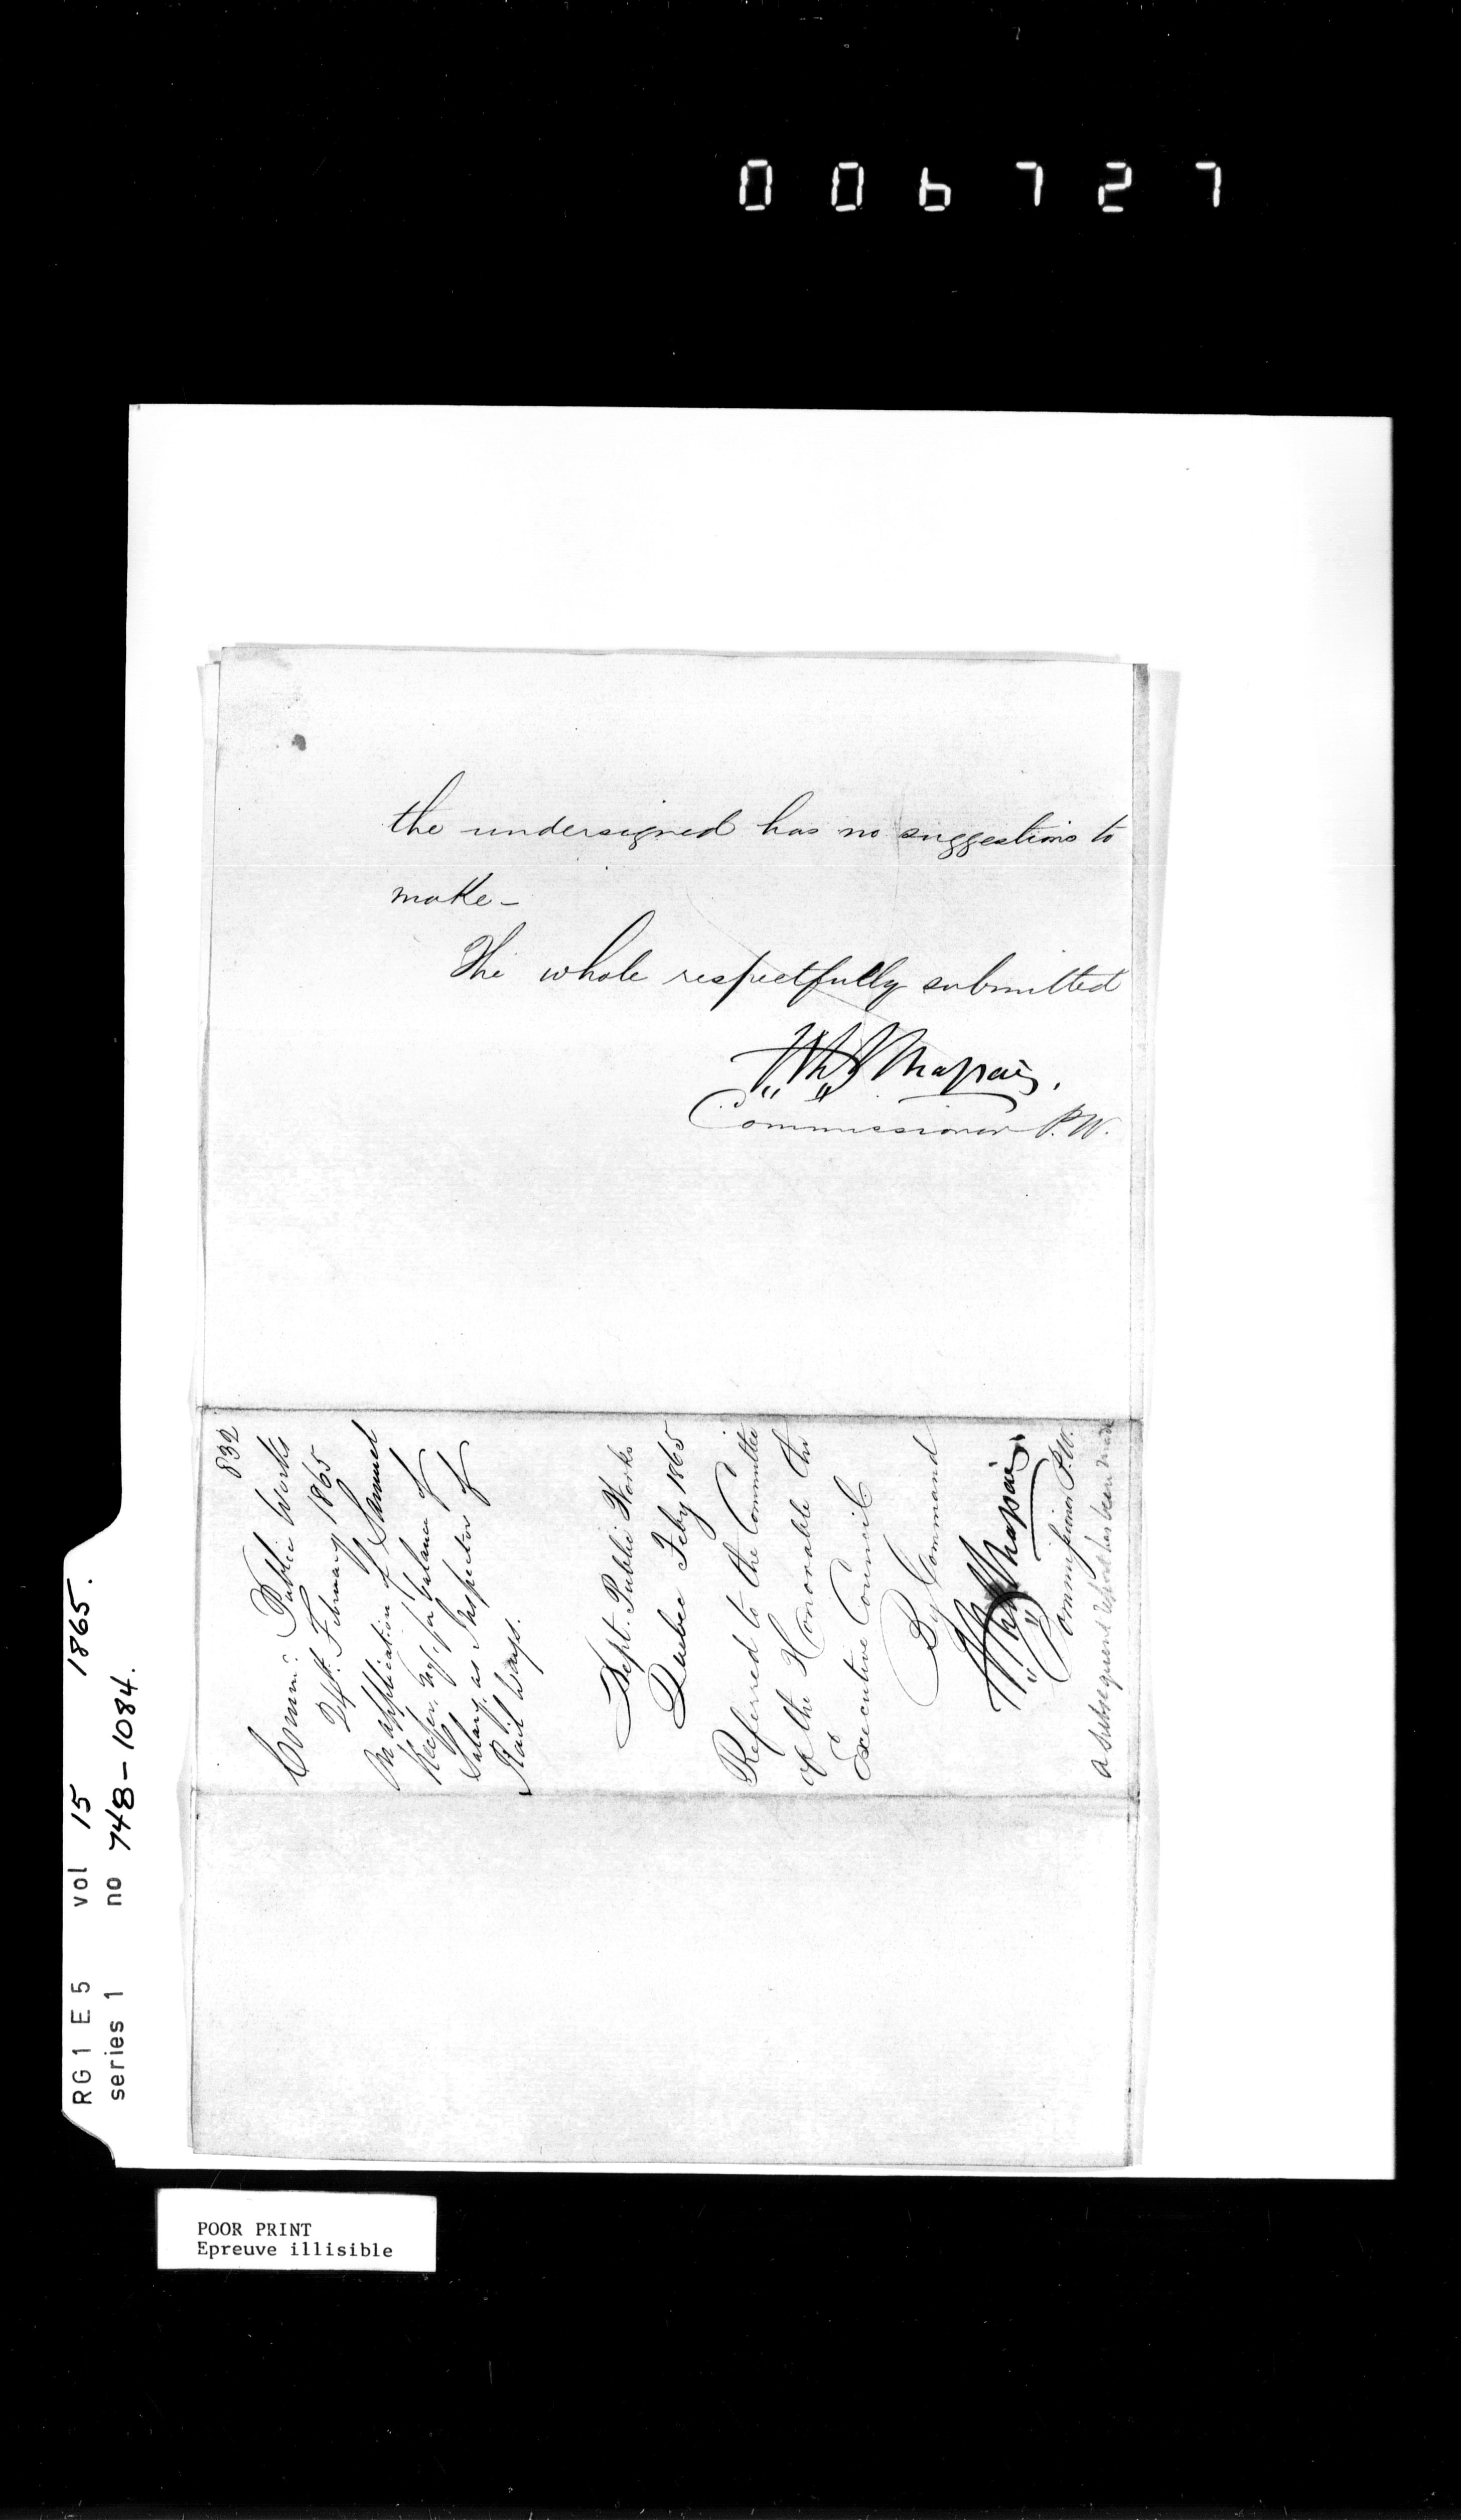 006727
the undersigned has no suggestions to
make -
The whole respectfully submitted
Chapais.
Commissioner P.W.
832
Commr. Public Works
24th. February 1865
On application of Samuel
Keefer, Esqr. for balance of
Salary, as Inspector of
Rail Ways.
Dept. Public Works
Quebec Feby 1865
Referred to the Committee
of the Honorable the
Executive Council
By Command
Chapais
Commissioner P.W.
a subsequent report has been made
RG 1 E 5 vol 15 1865.
series 1 no 748-1084.
POOR PRINT
Epreuve illisible